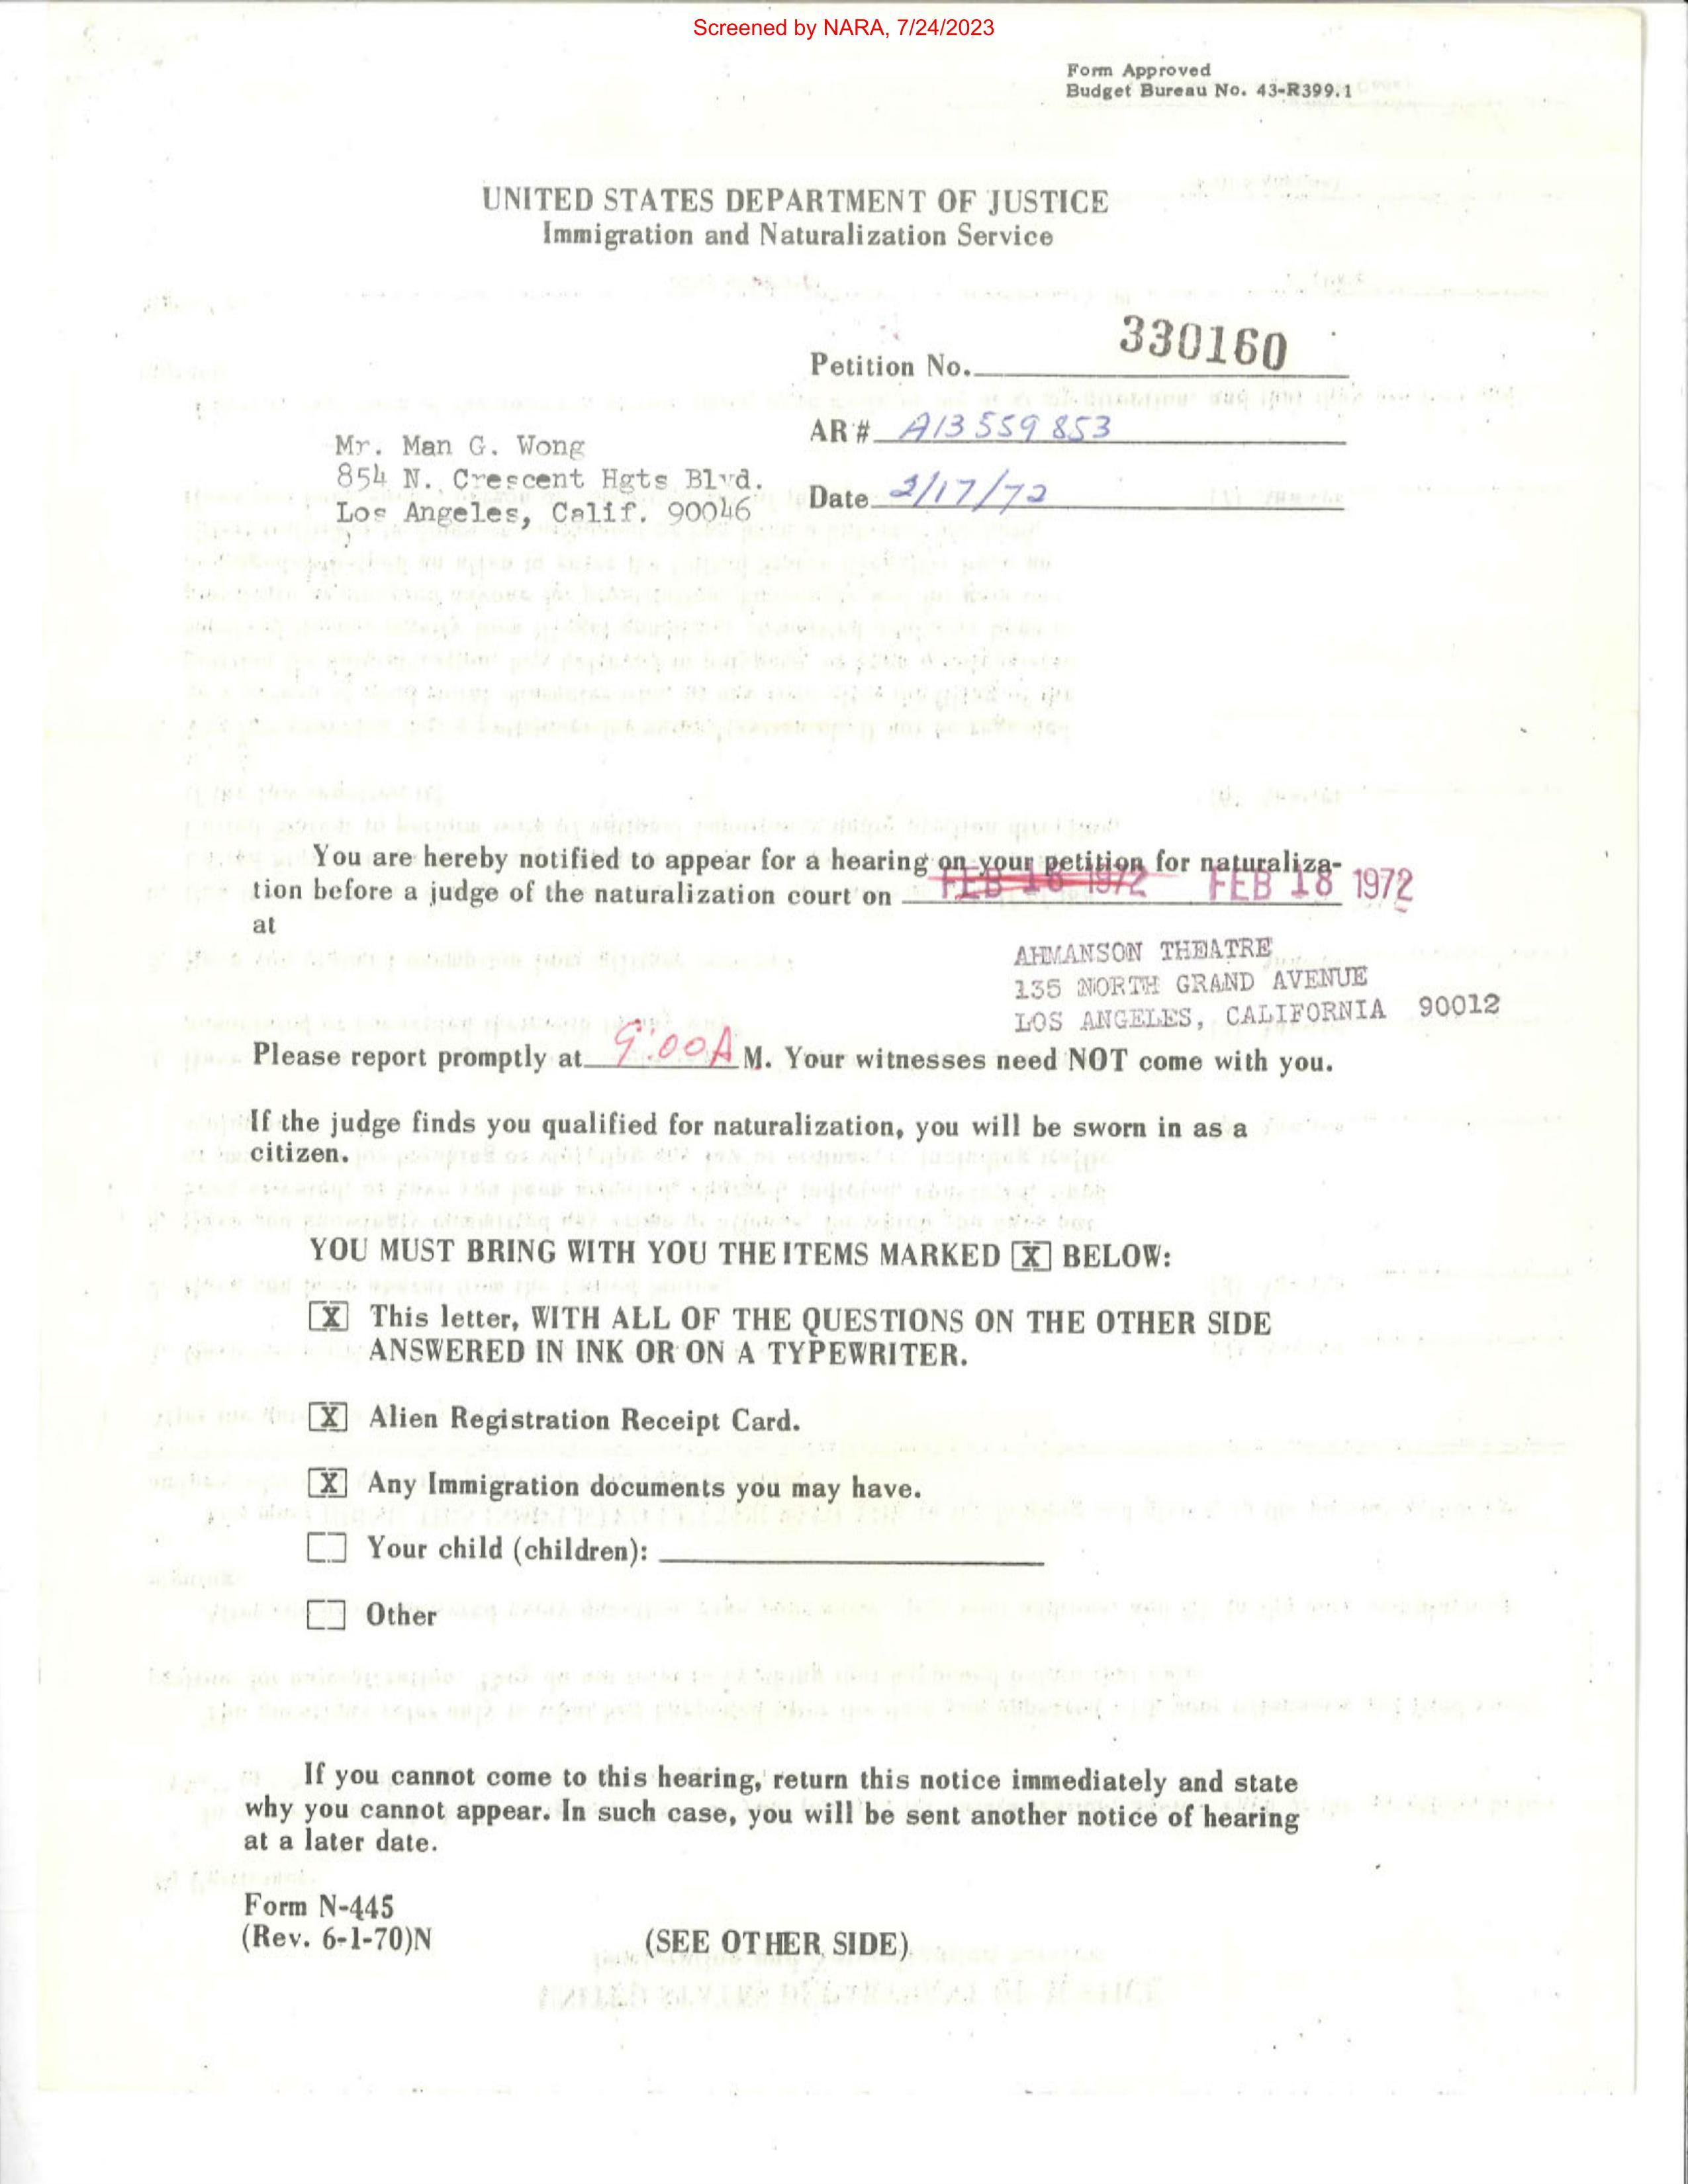 Screened by NARA, 7/24/2023
Form Approved
Budget Bureau No. 43-R399.1
UNITED STATES DEPARTMENT OF JUSTICE
Immigration and Naturalization Service
Petition No. 330160
AR # A13 559 853
Mr. Man G. Wong
854 N. Crescent Hgts Blvd.
Los Angeles, Calif. 90046
Date 2/17/72
You are hereby notified to appear for a hearing on your petition for naturaliza-
tion before a judge of the naturalization court on FEB 18 1972 FEB 18 1972
at
AHMANSON THEATRE
135 NORTH GRAND AVENUE
LOS ANGELES, CALIFORNIA 90012
Please report promptly at 9:00A M. Your witnesses need NOT come with you.
If the judge finds you qualified for naturalization, you will be sworn in as a
citizen.
YOU MUST BRING WITH YOU THE ITEMS MARKED X BELOW:
X This letter, WITH ALL OF THE QUESTIONS ON THE OTHER SIDE
ANSWERED IN INK OR ON A TYPEWRITER.
X Alien Registration Receipt Card.
X Any Immigration documents you may have.
Your child (children):
Other
If you cannot come to this hearing, return this notice immediately and state
why you cannot appear. In such case, you will be sent another notice of hearing
at a later date.
Form N-445
(Rev. 6-1-70)N
(SEE OTHER SIDE)